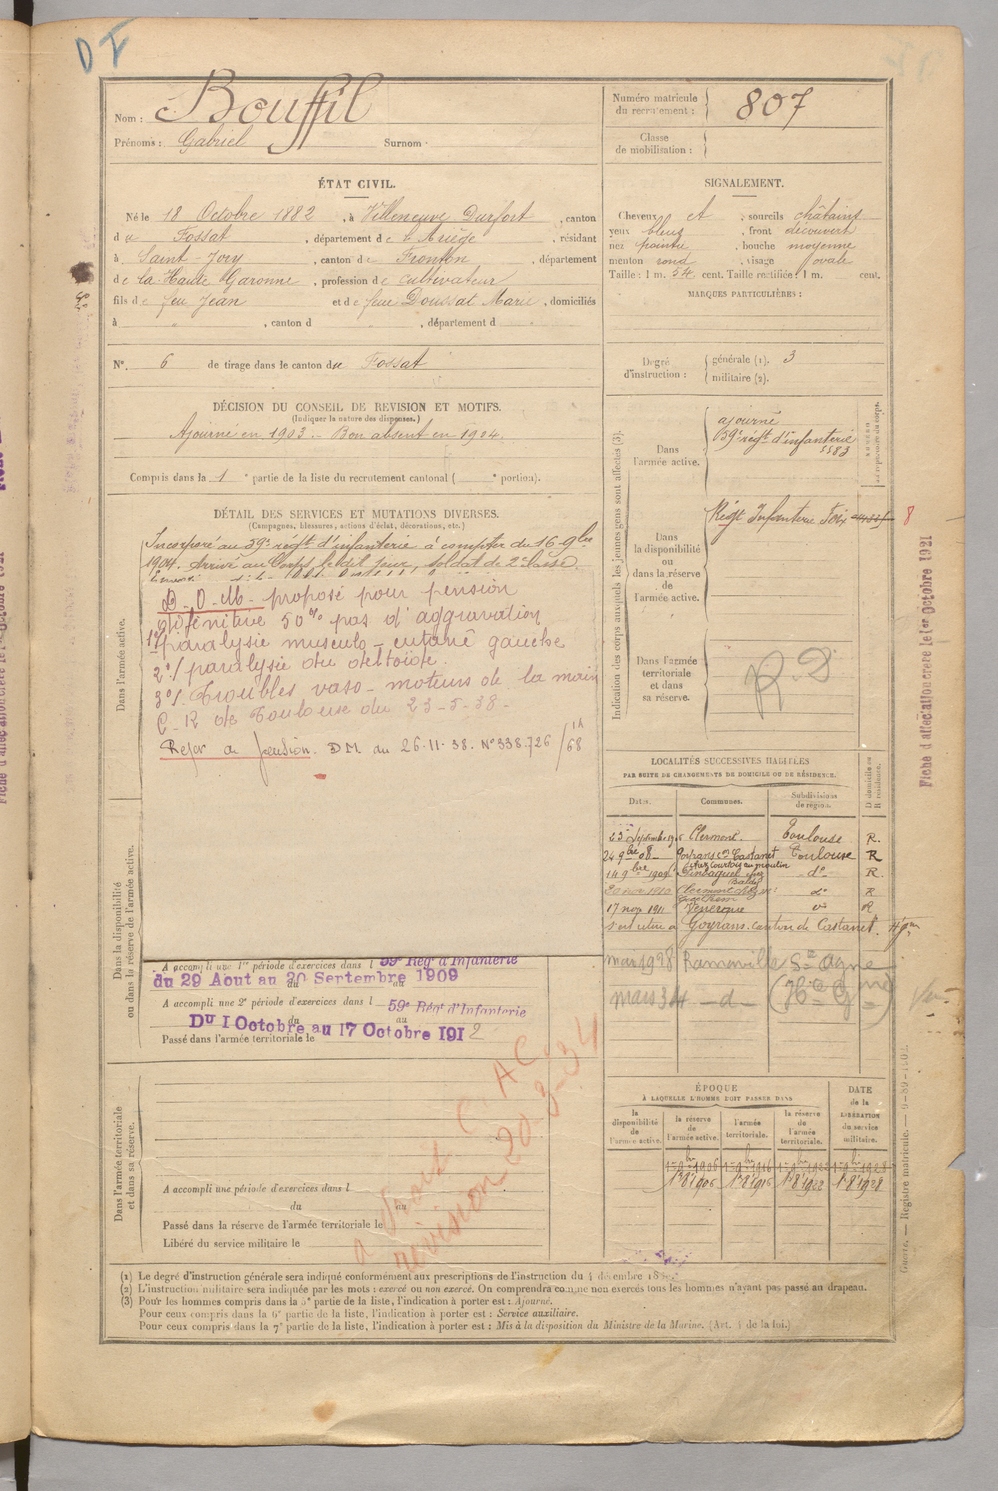 DI
Nom : Bouffil
Prénoms : Gabriel Surnom :
Numéro matricule du recrutement : 807
Classe de mobilisation :
ÉTAT CIVIL.
Né le 18 Octobre 1882, à Villeneuve Durfort, canton
du Fossat, département de l'Ariège, résidant
à Saint-Jory, canton de Fronton, département
de la Haute Garonne, profession de cultivateur
fils de feu Jean et de feue Doussat Marie, domiciliés
à , canton d , département d
N° 6 de tirage dans le canton du Fossat
SIGNALEMENT.
Cheveux et , sourcils châtains
yeux bleus, front découvert
nez pointu, bouche moyenne
menton rond, visage ovale
Taille : 1 m. 54 cent. Taille rectifiée : 1 m. cent.
MARQUES PARTICULIÈRES :
Degré d'instruction : générale (1). 3
militaire (2).
DÉCISION DU CONSEIL DE REVISION ET MOTIFS.
(Indiquer la nature des dispenses.)
Ajourné en 1903 - Bon absent en 1904.
Compris dans la 1e partie de la liste du recrutement cantonal ( e portion).
DÉTAIL DES SERVICES ET MUTATIONS DIVERSES.
(Campagnes, blessures, actions d'éclat, décorations, etc.)
Dans l'armée active.
Incorporé au 59e régt d'infanterie à compter du 16 9bre
1904. Arrivé au Corps le dit jour, soldat de 2e classe.
D.O.M. proposé pour pension
définitive 50 % pas d'aggravation
1°/ paralysie musculo-cutané gauche
2°/ paralysie du deltoïde.
3°/ Troubles vaso-moteurs de la main
C.R de Toulouse du 23-5-38-
Pension. DM du 26.11.38. N° 338.726 /68
Dans la disponibilité ou dans la réserve de l'armée active.
A accompli une 1re période d'exercices dans l 59e Rég' d'Infanterie
du 29 Aout au 20 Septembre 1909
A accompli une 2e période d'exercices dans l 59e Rég' d'Infanterie
Du 1 Octobre au 17 Octobre 1912
Passé dans l'armée territoriale le
Dans l'armée territoriale et dans sa réserve.
A accompli une période d'exercices dans l
du au
Passé dans la réserve de l'armée territoriale le
Libéré du service militaire le
a Droit C. AC
révision 20-3-34
Indication des corps auxquels les jeunes gens sont affectés (3).
Dans l'armée active.
ajourné
59e régt d'infanterie
5583
NUMÉRO au répertoire du corps.
Dans la disponibilité ou dans la réserve de l'armée active.
Régt Infanterie Foix 8
Dans l'armée territoriale et dans sa réserve.
R.D
LOCALITÉS SUCCESSIVES HABITÉES
PAR SUITE DE CHANGEMENTS DE DOMICILE OU DE RÉSIDENCE.
Dates. Communes. Subdivisions de région. D domicile ou R résidence.
23 Septembre 1906 Clermont. Toulouse R.
24 9bre 08 Goyrans con Castanet Toulouse R
chez Courtois au moulin
14 9bre 1909 Pinsaguel chez do R
20 nov. 1910 Clermont do R
17 nov 1911 Venerque R
s'est retiré à Goyrans. canton de Castanet.
mars 1928 Ramonville St Agne
mars 34 -d- (Hte Gne)
ÉPOQUE
À LAQUELLE L'HOMME DOIT PASSER DANS
la disponibilité de l'armée active. la réserve de l'armée active. l'armée territoriale. la réserve de l'armée territoriale.
DATE de la LIBÉRATION du service militaire.
1er 9bre 1906 1er 9bre 1916 1er 9bre 1922 1er 9bre 1928
1er 8e 1906 1er 8e 1916 1er 8e 1922 1er 8e 1928
Fiche d'affectation créée le 1er Octobre 1921
Guerre. — Registre matricule.
(1) Le degré d'instruction générale sera indiqué conformément aux prescriptions de l'instruction du 4 décembre
(2) L'instruction militaire sera indiquée par les mots : exercé ou non exercé. On comprendra comme non exercés tous les hommes n'ayant pas passé au drapeau.
(3) Pour les hommes compris dans la 5e partie de la liste, l'indication à porter est : Ajourné.
Pour ceux compris dans la 6e partie de la liste, l'indication à porter est : Service auxiliaire.
Pour ceux compris dans la 7e partie de la liste, l'indication à porter est : Mis à la disposition du Ministre de la Marine. (Art. 4 de la loi.)